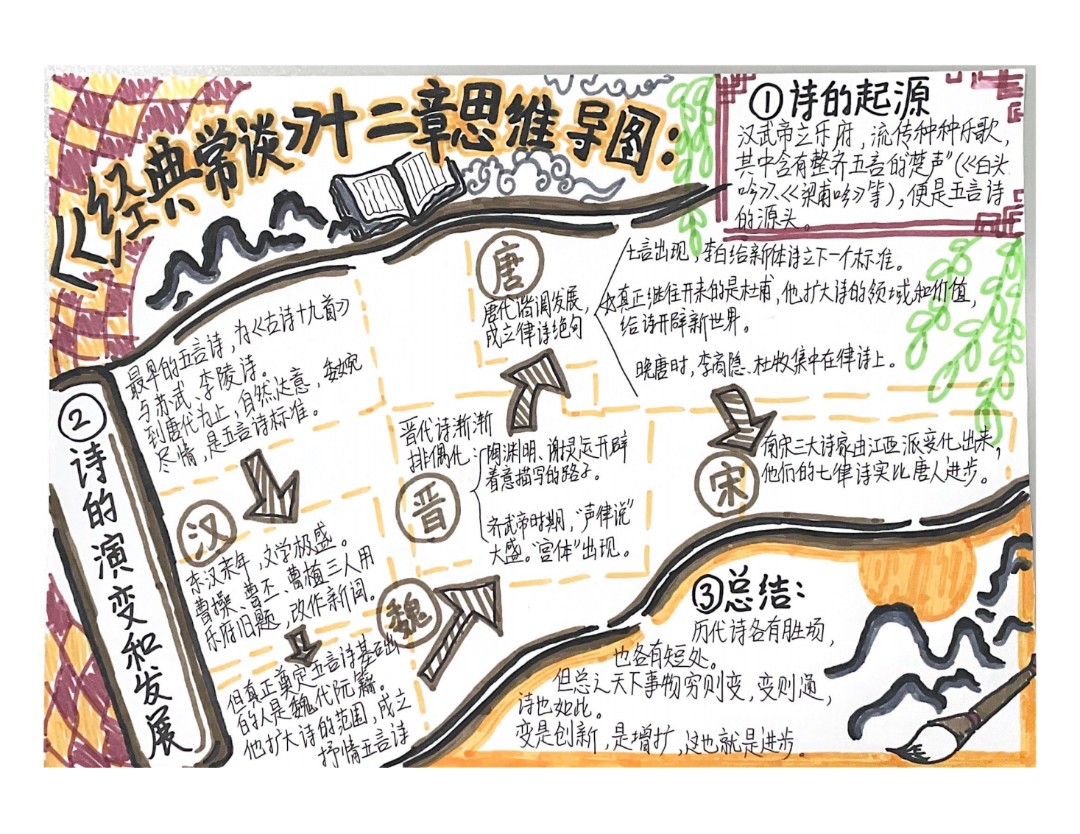 《经典常谈》十二章思维导图：
①诗的起源
汉武帝立乐府，流传种种乐歌，
其中含有整齐五言的"楚声"(《白头
吟》、《梁甫吟》等)，便是五言诗
的源头。
②诗的演变和发展
最早的五言诗，为《古诗十九首》
与苏武、李陵诗。
到唐代为止，自然达意，委婉
尽情，是五言诗标准。
汉
东汉末年，文学极盛。
曹操、曹丕、曹植三人用
乐府旧题，改作新词。
但真正奠定五言诗基础出
的人是魏代阮籍。
他扩大诗的范围，成立
抒情五言诗
魏
晋
晋代诗渐渐
排偶化
陶渊明、谢灵运开辟
着意描写的路子。
齐武帝时期，"声律说"
大盛。"宫体"出现。
唐
唐代谐调发展，
成立律诗绝句
七言出现，李白给新体诗立下一个标准。
真正继往开来的是杜甫，他扩大诗的领域和价值，
给诗开辟新世界。
晚唐时，李商隐、杜牧集中在律诗上。
宋
南宋三大诗家由江西派变化出来，
他们的七律诗实比唐人进步。
③总结：
历代诗各有胜场，
也各有短处。
但总之天下事物穷则变，变则通，
诗也如此。
变是创新，是增扩，这也就是进步。